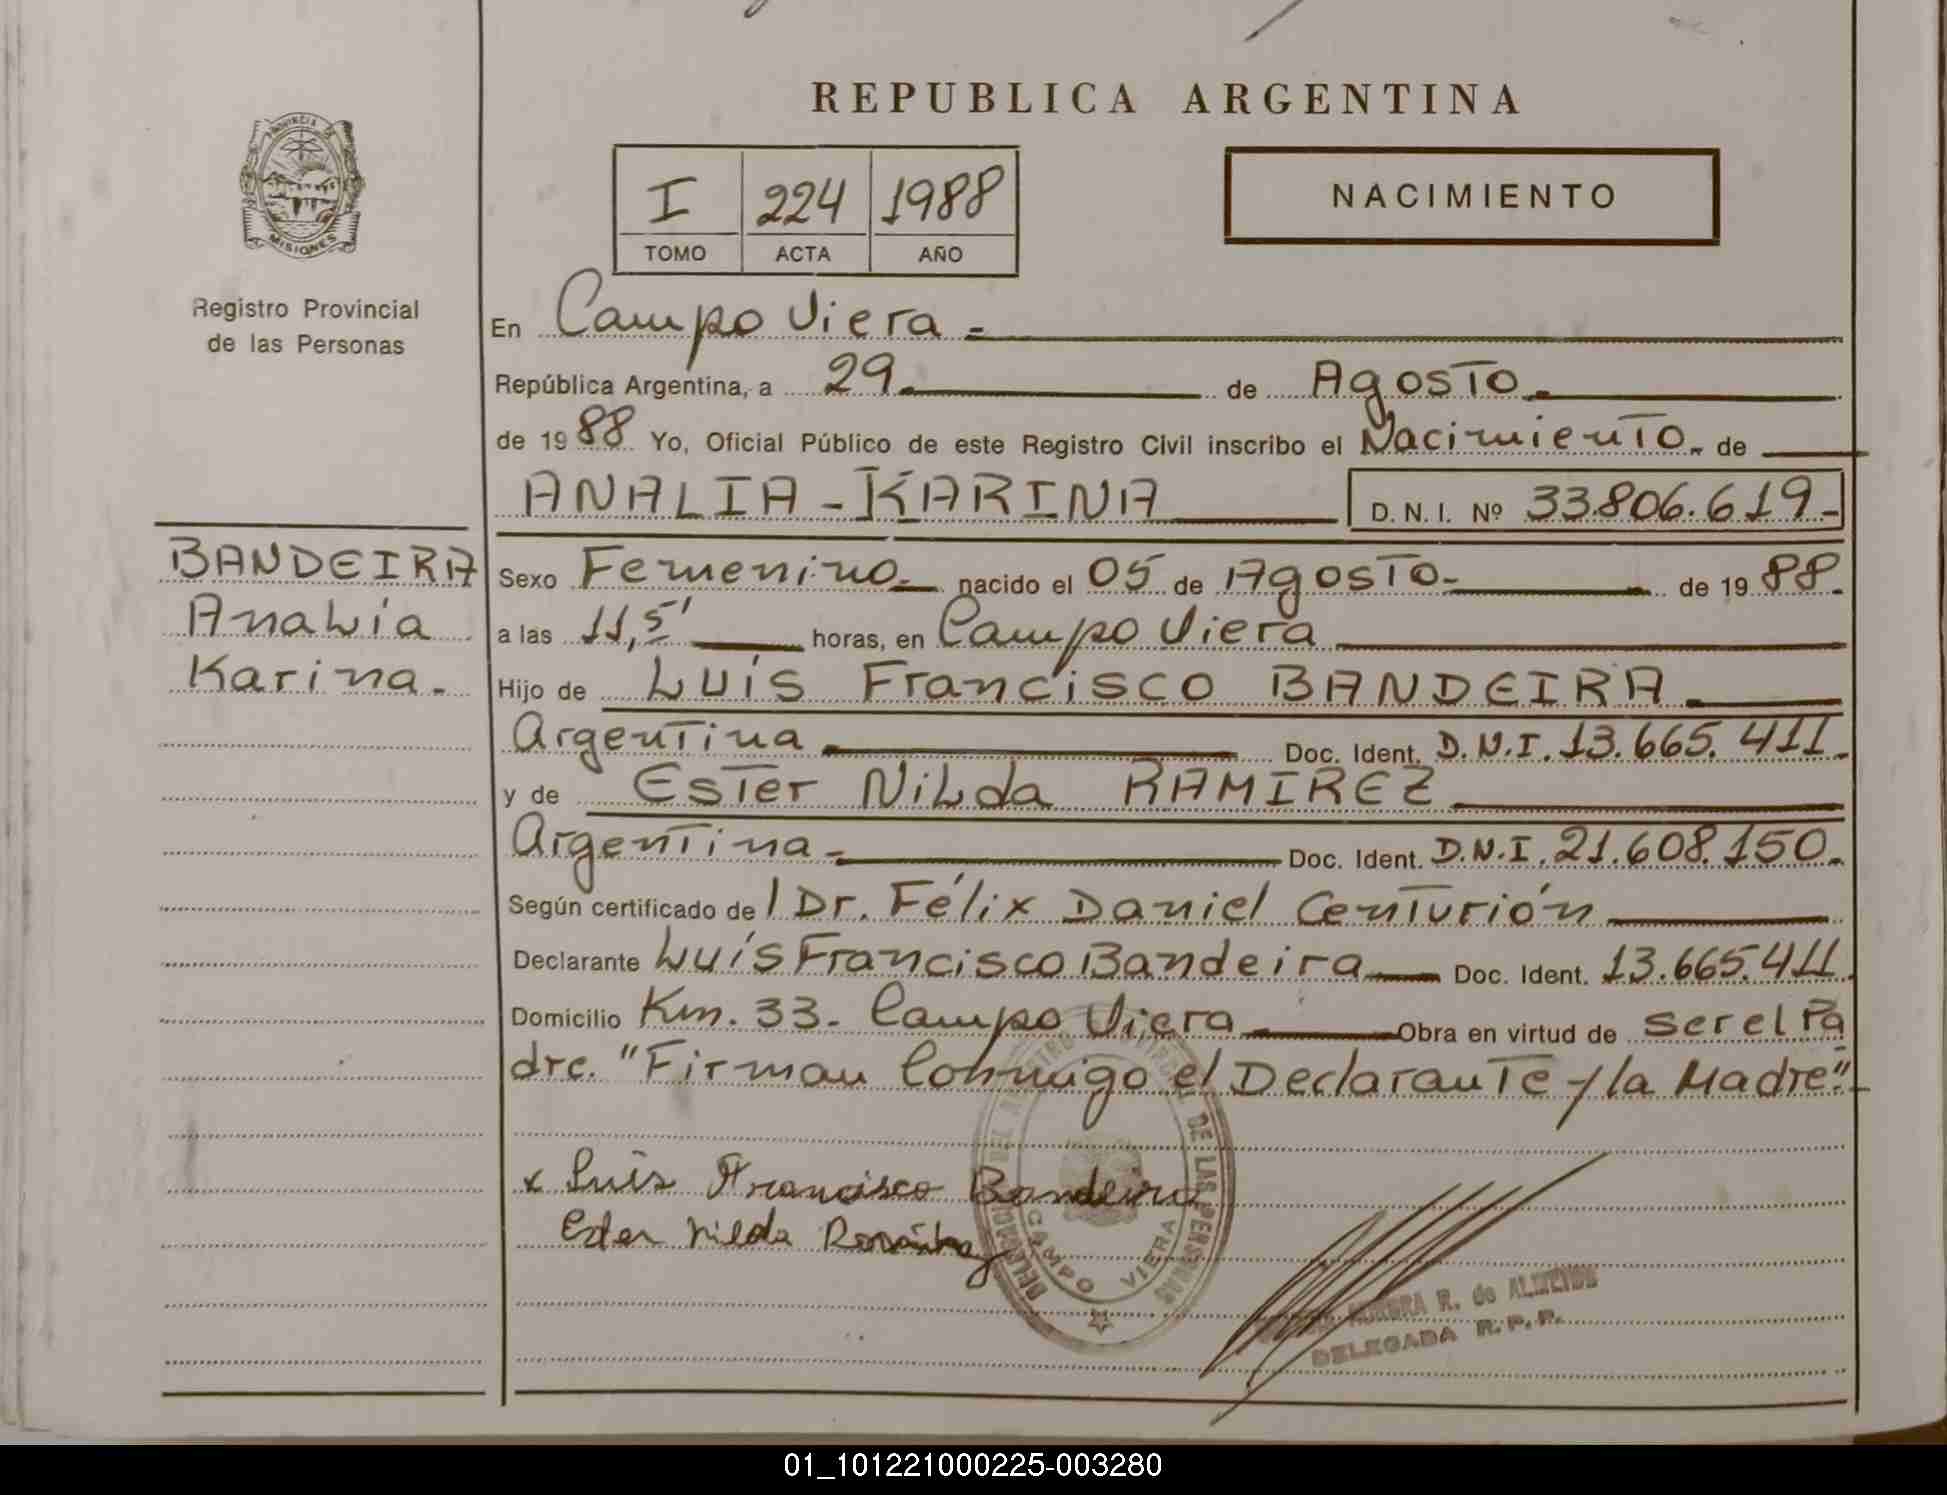 REPUBLICA ARGENTINA
PROVINCIA DE
MISIONES
Registro Provincial
de las Personas
I 224 1988
TOMO ACTA AÑO
NACIMIENTO
En Campo Viera =
República Argentina, a 29. de Agosto.
de 1988 Yo, Oficial Público de este Registro Civil inscribo el Nacimiento. de
ANALIA - KARINA D. N. I. Nº 33.806.619.-
BANDEIRA
Analía
Karina.
Sexo Femenino.- nacido el 05 de Agosto.- de 1988.
a las 11,5' horas, en Campo Viera
Hijo de Luís Francisco BANDEIRA.
Argentina Doc. Ident. D.N.I. 13.665.411.
y de Ester Nilda RAMIREZ
Argentina.- Doc. Ident. D.N.I. 21.608.150.
Según certificado del Dr. Félix Daniel Centurión
Declarante Luís Francisco Bandeira Doc. Ident. 13.665.411.
Domicilio Km. 33. Campo Viera Obra en virtud de ser el Pa
dre. "Firman Conmigo el Declarante y la Madre".-
x Luis Francisco Bandeira
Ester nilda
DELEGACION DEL REGISTRO PROVINCIAL DE LAS PERSONAS
CAMPO VIERA
R. de ALMEIDA
DELEGADA R. P. P.
01_101221000225-003280